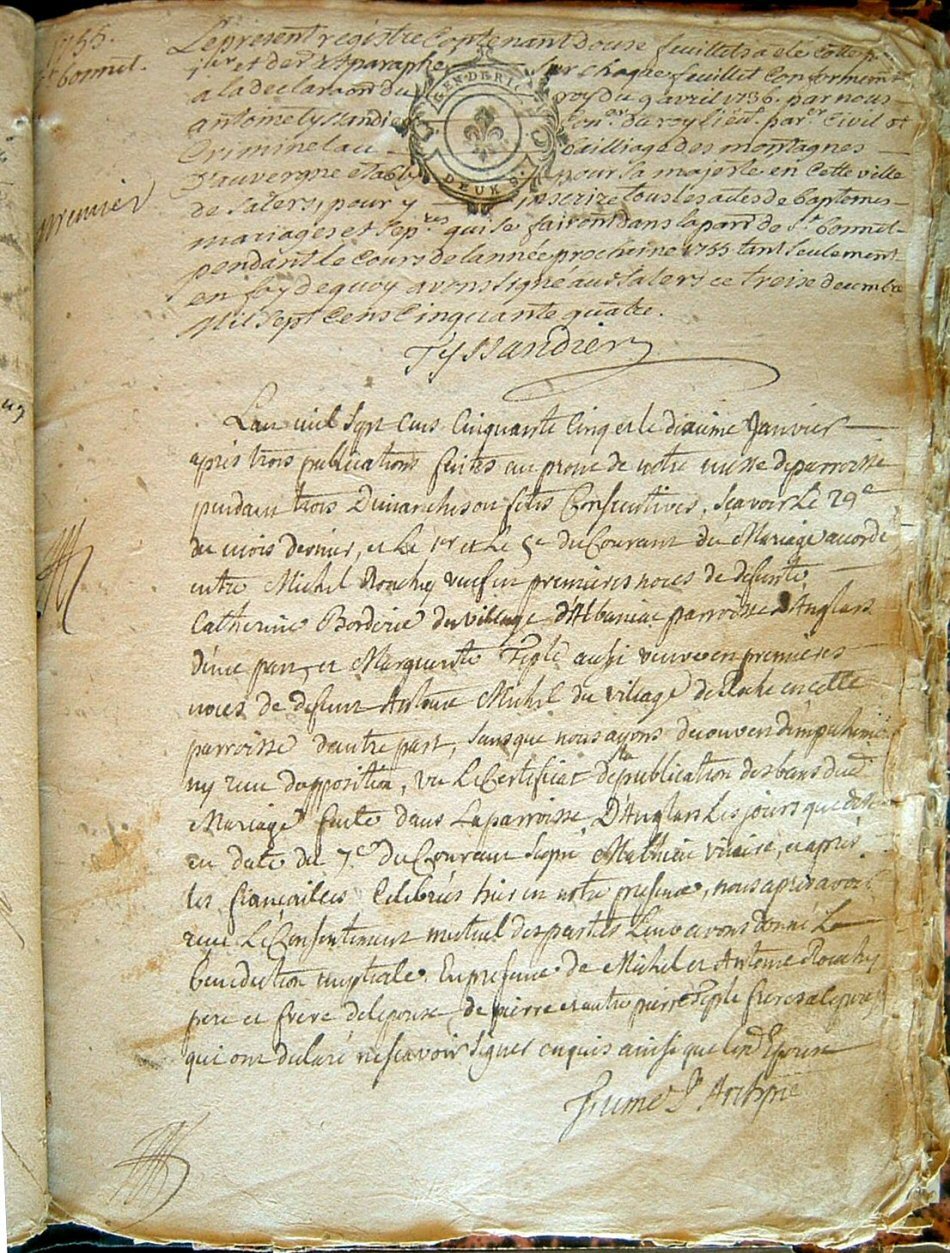 1755.
St bonnet.
premier
Le present régistre Contenant douse feuillets a ete cotté p
ier et der et paraphé sur chaque feuillet Conformemt
a la declaraon du roy du 9 avril 1736. par nous
antoine tyssandier coner du roy lieut. parer Civil et
Criminel au bailliage des montagnes
d'auvergne etabli pour sa majesté en Cette ville
de Salers, pour y inscrire tous les actes de baptemes
mariages et sepres qui se fairont dans la parr de St bonnet
pendant le Cours de l'année prochaine 1755 tant seulement
en foy de quoy avons signé aud Salers ce treise decembre
Mil Sept Cens Cinquante quatre.
Tyssandier
GEN. DE RIOM
DEUX S.
L'an mil Sept Cens Cinquante Cinq et le dixieme Janvier
après trois publications faites au prone de notre messe de parroisse
pendant trois Dimanches ou fetes Consecutives, Sçavoir Le 29e
du mois dernier, et Le 1er et Le 5e du Courant du Mariage accordé
entre Michel Rouchy veuf en premieres noces de defunte
Catherine Borderie du village d'Albaniac parroisse d'Anglars
d'une part, et Marguerite Teple aussi veuve en premieres
noces de defunt Antoine Michel du village de Roche en cette
parroisse d'autre part, sans que nous ayons decouvert d'empechemt
ny reçu d'opposition, vu Le Certificat de la publication des bans dud
Mariage faite dans La parroisse D'Anglars Les jours que dess
en date du 7e du Courant Signé Mathieu vicaire, et après
les fiançailles Celebrées hier en notre presence, nous après avoir
reçu Le Consentement mutuel des parties Leur avons donné La
benediction nuptiale. En presence de Michel et Antoine Rouchy
pere et frere de l'epoux, de pierre et autre pierre Teple freres a l'epouse
qui ont declaré ne sçavoir signer enquis ainsi que led Epoux